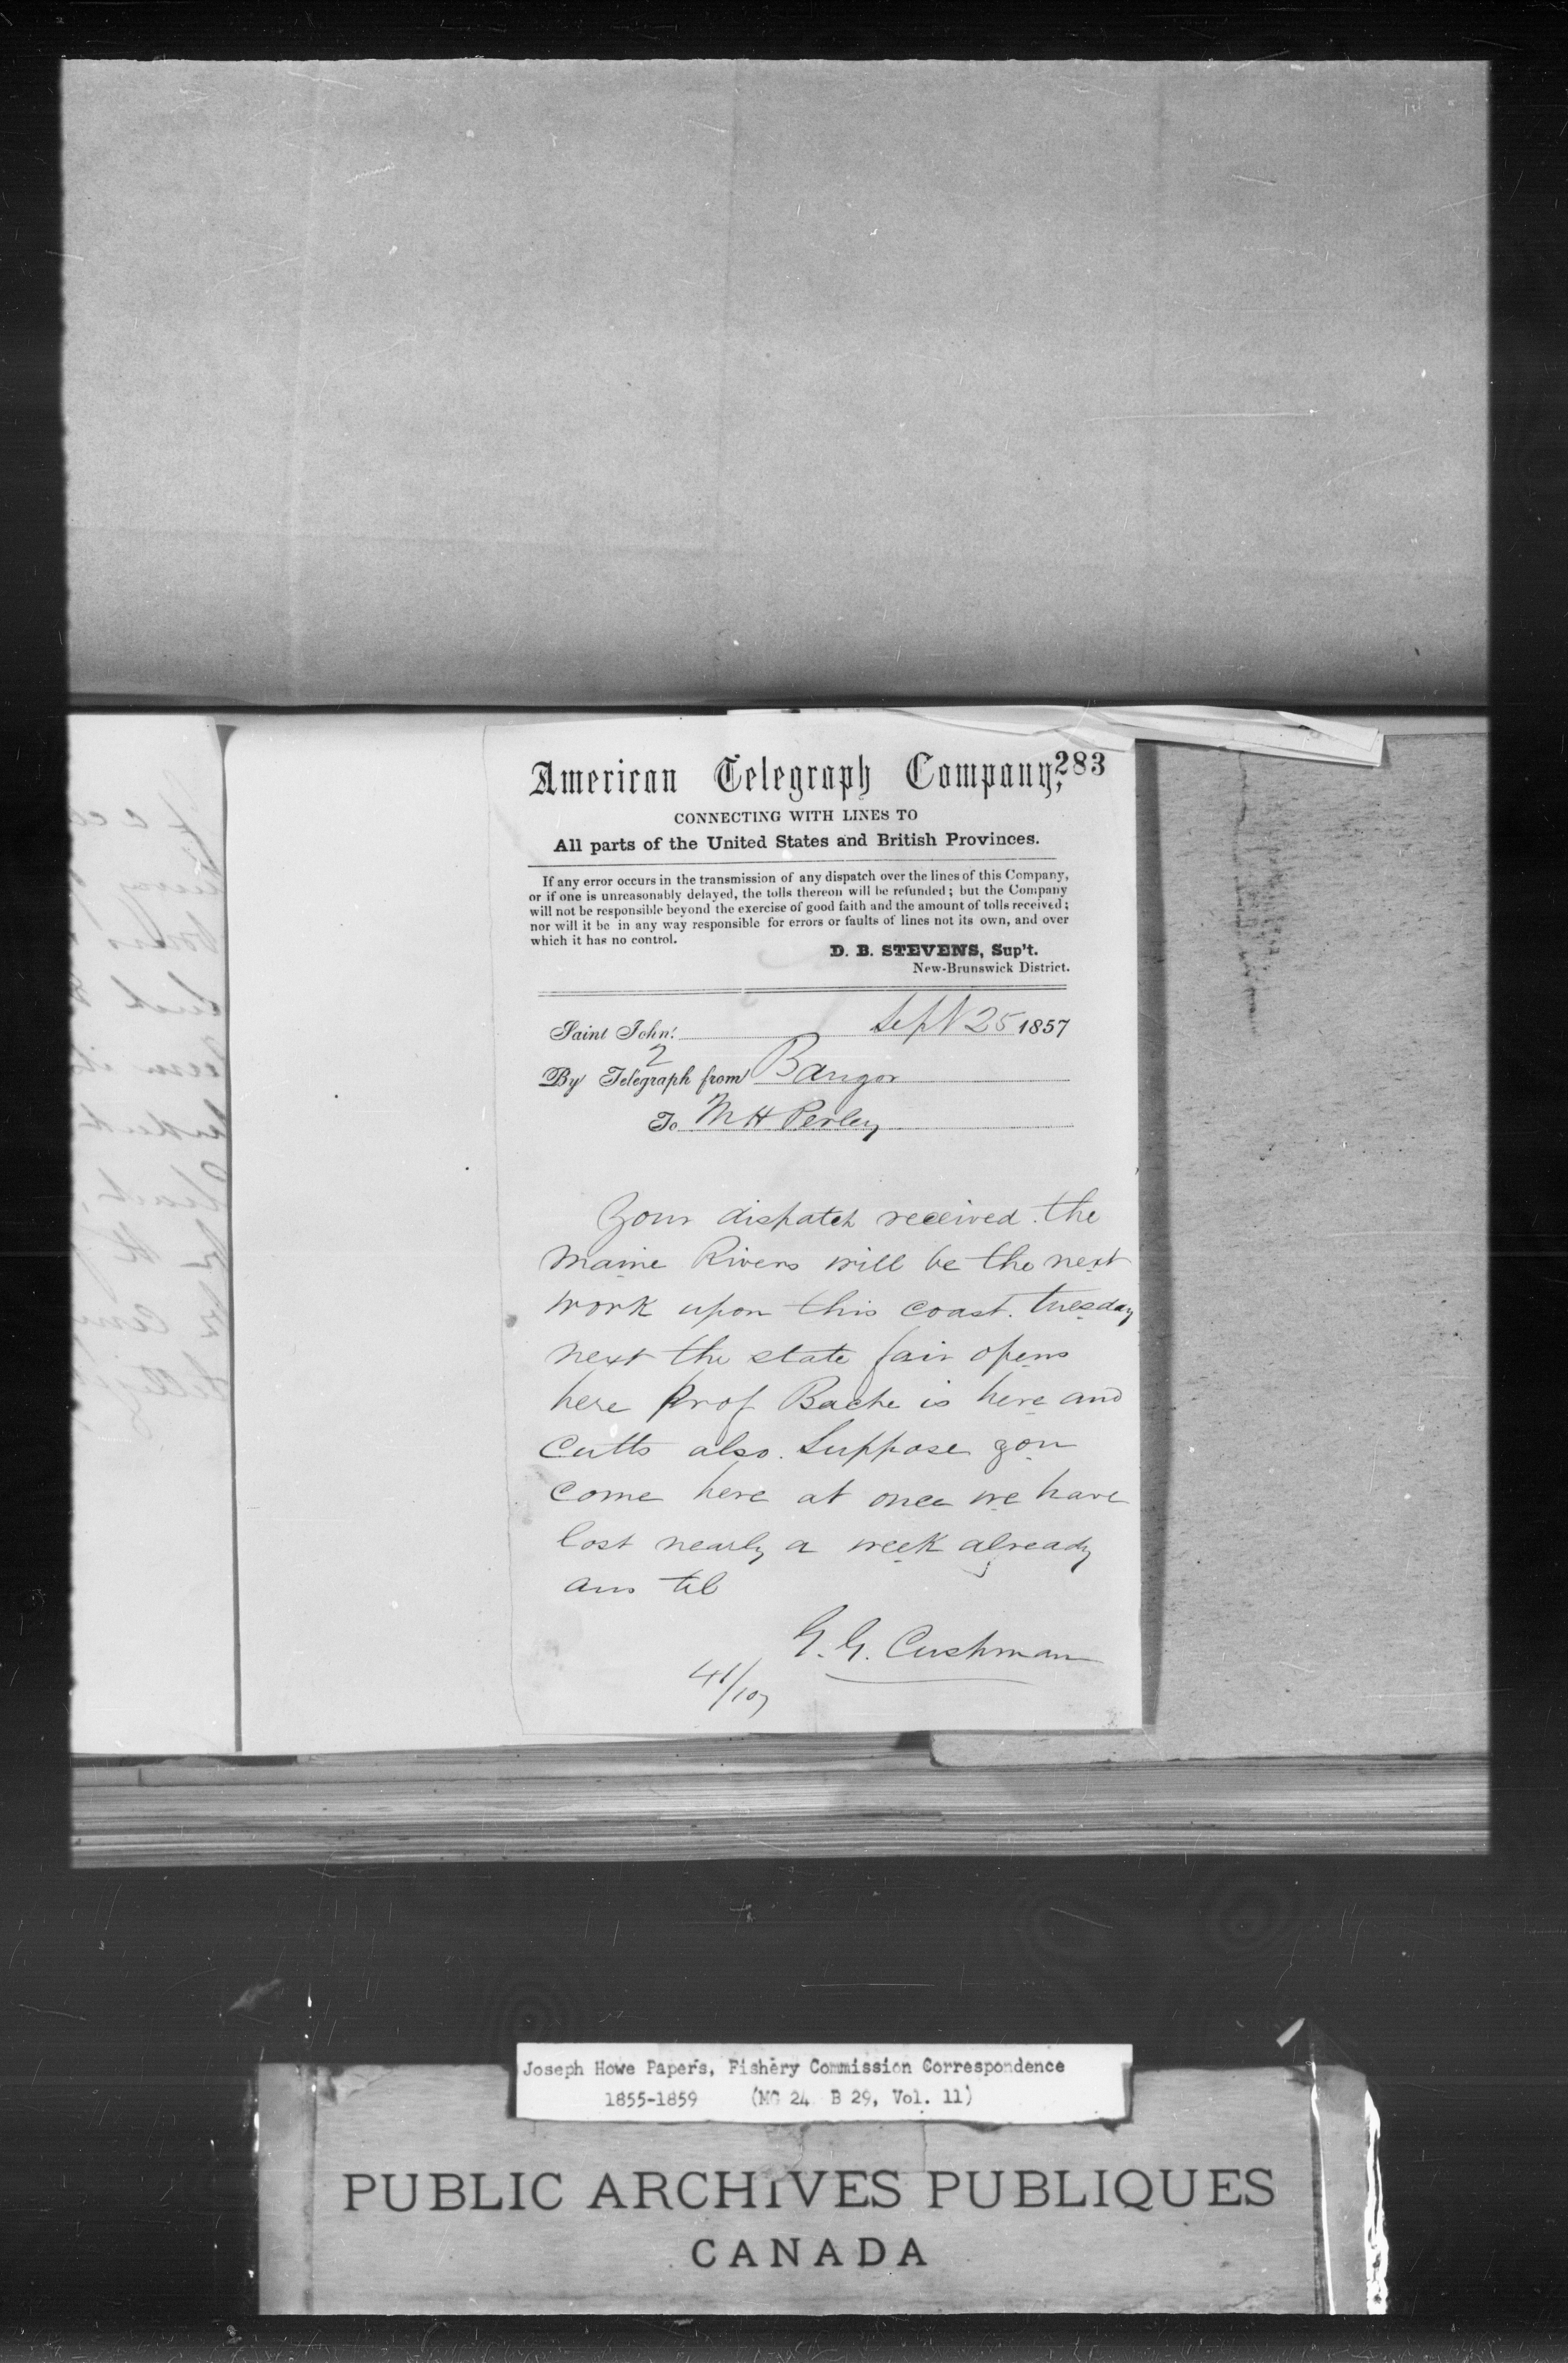 American Telegraph Company,
283
CONNECTING WITH LINES TO
All parts of the United States and British Provinces.
If any error occurs in the transmission of any dispatch over the lines of this Company,
or if one is unreasonably delayed, the tolls thereon will be refunded; but the Company
will not be responsible beyond the exercise of good faith and the amount of tolls received;
nor will it be in any way responsible for errors or faults of lines not its own, and over
which it has no control.
D. B. STEVENS, Sup't.
New-Brunswick District.
Saint John: Sept 25 1857
2
By Telegraph from Bangor
To M H Perley
Your dispatch received. the
Maine Rivers will be the next
work upon this coast. tuesday
next the state fair opens
here Prof Bache is here and
Cutts also. Suppose you
come here at once we have
lost nearly a week already
ans tel
G. G. Cushman
41/107
Joseph Howe Papers, Fishery Commission Correspondence
1855-1859 (MG 24 B 29, Vol. 11)
PUBLIC ARCHIVES PUBLIQUES
CANADA